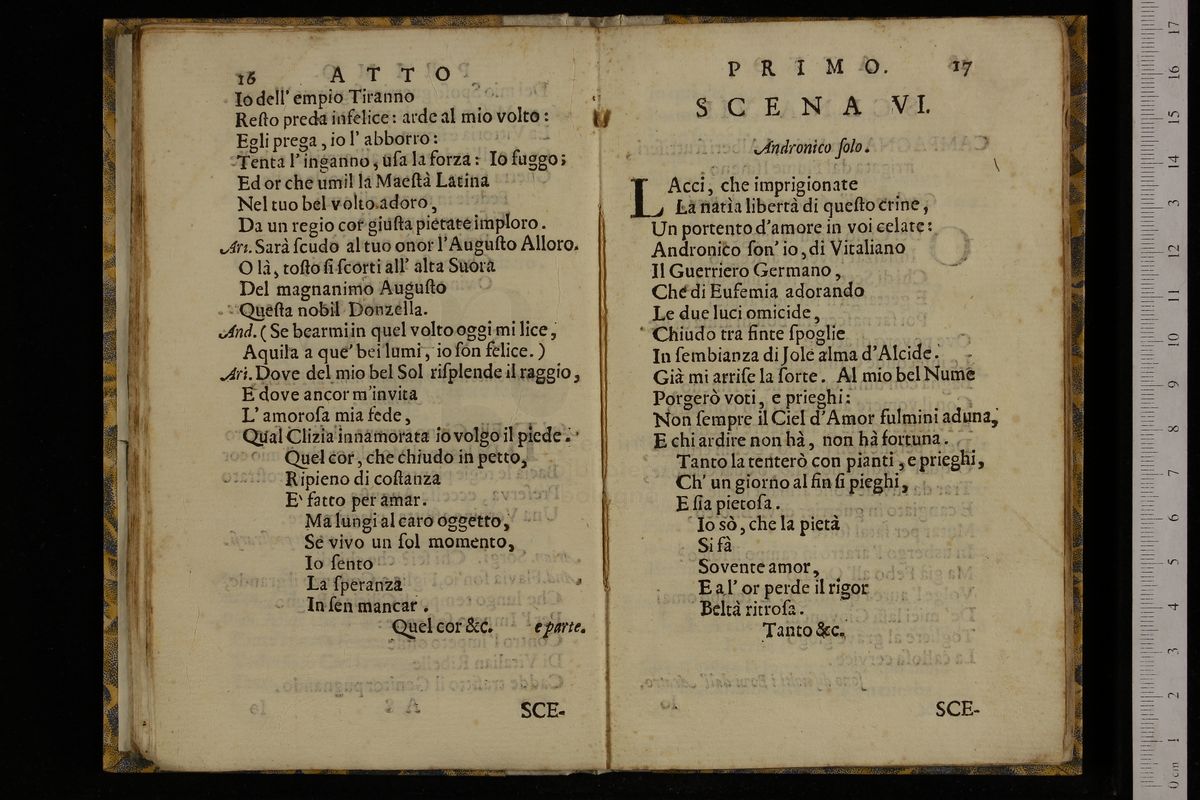 16 ATTO
Io dell' empio Tiranno
Reſto preda infelice: arde al mio volto:
Egli prega, io l' abborro:
Tenta l' inganno, uſa la forza: Io fuggo;
Ed or che umil la Maeſtà Latina
Nel tuo bel volto adoro,
Da un regio cor giuſta pietate imploro.
Ari. Sarà ſcudo al tuo onor l'Auguſto Alloro.
O là, toſto ſi ſcorti all' alta Suora
Del magnanimo Auguſto
Queſta nobil Donzella.
And. (Se bearmi in quel volto oggi mi lice,
Aquila a que' bei lumi, io ſon felice.)
Ari. Dove del mio bel Sol riſplende il raggio,
E dove ancor m'invita
L' amoroſa mia fede,
Qual Clizia innamorata io volgo il piede.
Quel cor, che chiudo in petto,
Ripieno di coſtanza
E' fatto per amar.
Ma lungi al caro oggetto,
Se vivo un ſol momento,
Io ſento
La ſperanza
In ſen mancar.
Quel cor &c. e parte.
SCE-
PRIMO. 17
SCENA VI.
Andronico ſolo.
LAcci, che imprigionate
La natìa libertà di queſto crine,
Un portento d'amore in voi celate:
Andronico ſon' io, di Vitaliano
Il Guerriero Germano,
Che di Eufemia adorando
Le due luci omicide,
Chiudo tra finte ſpoglie
In ſembianza di Jole alma d'Alcide.
Già mi arriſe la ſorte. Al mio bel Nume
Porgerò voti, e prieghi:
Non ſempre il Ciel d'Amor fulmini aduna,
E chi ardire non hà, non hà fortuna.
Tanto la tenterò con pianti, e prieghi,
Ch' un giorno al fin ſi pieghi,
E ſia pietoſa.
Io sò, che la pietà
Si fà
Sovente amor,
E a l' or perde il rigor
Beltà ritroſa.
Tanto &c.
SCE-
17
16
15
14
3
12
11
10
9
8
7
6
5
4
3
2
1
0 cm